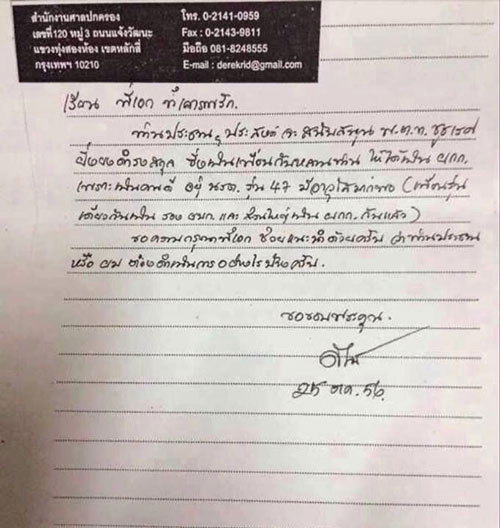 สำนักงานศาลปกครอง
เลขที่120 หมู่ 3 ถนนแจ้งวัฒนะ
แขวงทุ่งสองห้อง เขตหลักสี่
กรุงเทพฯ 10210
โทร. 0-2141-0959
Fax : 0-2143-9811
มือถือ 081-8248555
E-mail : derekrid@gmail.com
เรียน พี่เอก ที่เคารพรัก.
ท่านประธานฯ ประสงค์จะสนับสนุน พ.ต.ท. ชูธเรศ
ยิ่งยงดำรงสกุล ซึ่งเป็นเพื่อนกับหลานท่าน ให้ได้เป็น ผกก.
เพราะเป็นคนดี อยู่ นรต. รุ่น 47 มีอาวุโสมากพอ (เพื่อนรุ่น
เดียวกันเป็น รอง ผบก และ ส่วนใหญ่เป็น ผกก. กันแล้ว)
ขอความกรุณาพี่เอก ช่วยแนะนำด้วยครับ ว่าท่านประธาน
หรือ ผม ต้องดำเนินการอย่างไรบ้างครับ.
ขอขอบพระคุณ.
25 ตค. 56.